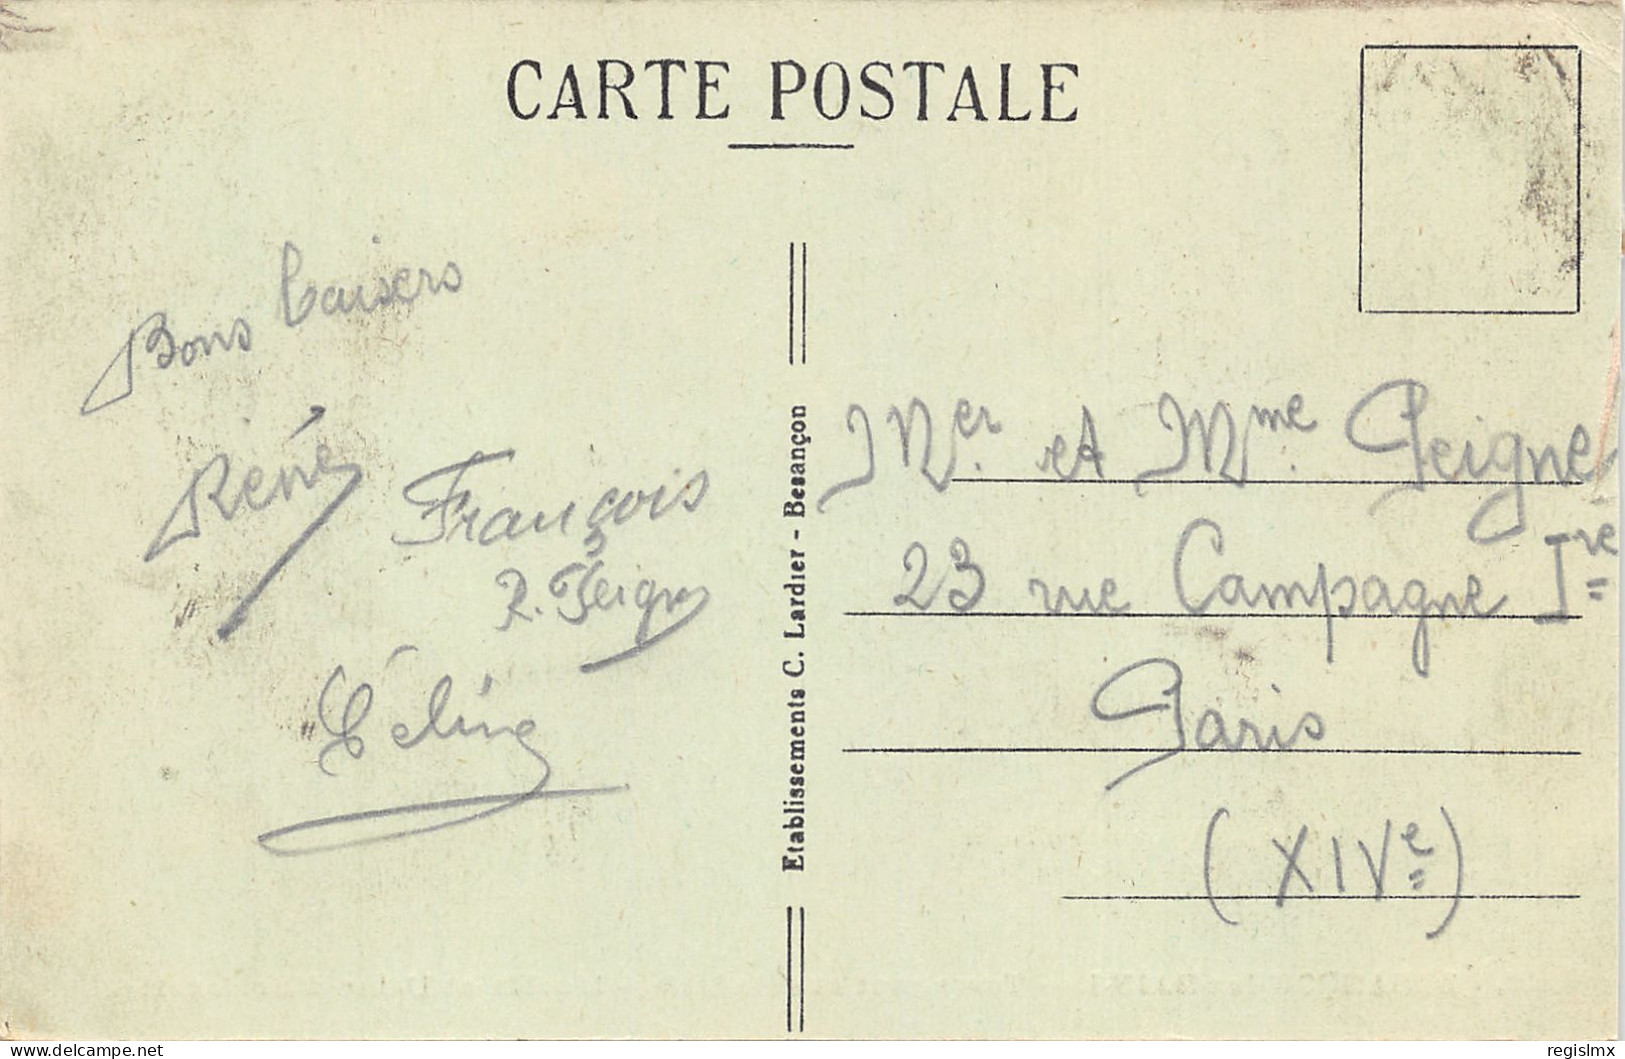 CARTE POSTALE
Bons baisers
René
François
R. Peigné
Céline
Etablissements C. Lardier - Besançon
Mer. et Mme. Peigné
23 rue Campagne Ire
Paris
(XIVe)
delcampe.net
regislmx